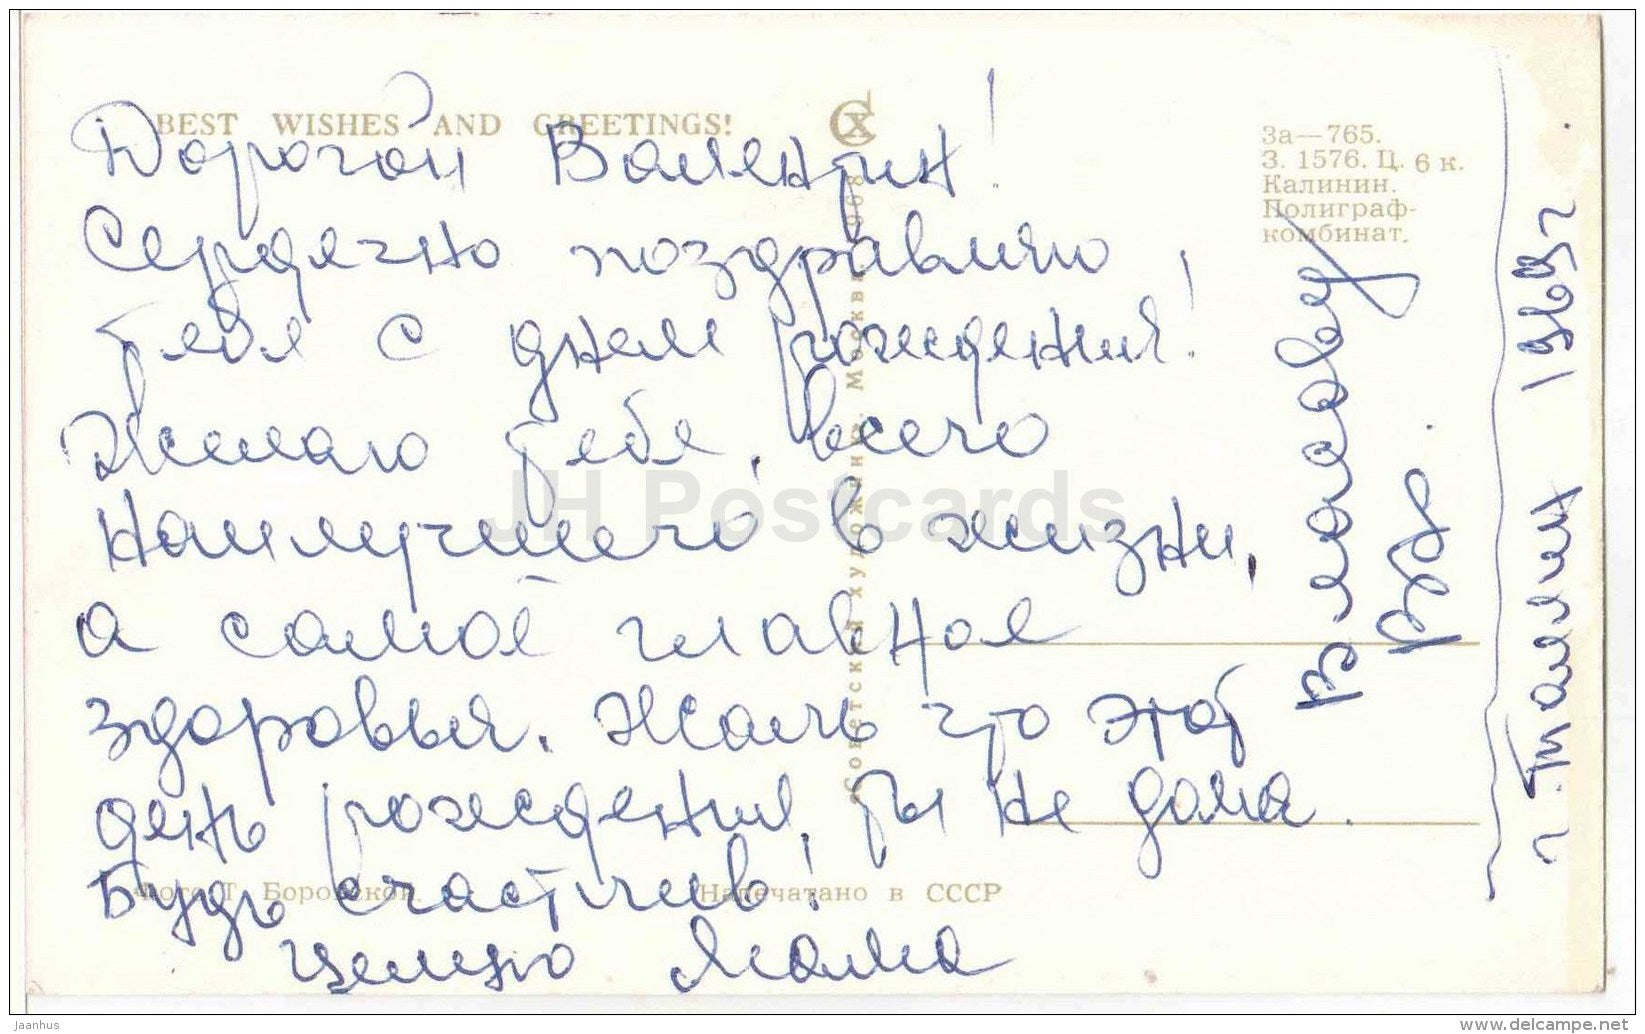 BEST WISHES AND GREETINGS!
Дорогой Валентин!
Сердечно поздравляю
тебя с днем рождения!
Желаю тебе, всего
наилучшего в жизни,
а самое главное
здоровья. Жаль что этот
день рождения, ты не дома.
Будь счастлив!
целую Мама
За—765.
З. 1576. Ц. 6 к.
Калинин.
Полиграф-
комбинат.
Советский художник. Москва 1968
Фото Т. Боровской.
Напечатано в СССР
В. Р.
г. Таллин 1969 г.
JH Postcards
jaanhus
www.delcampe.net